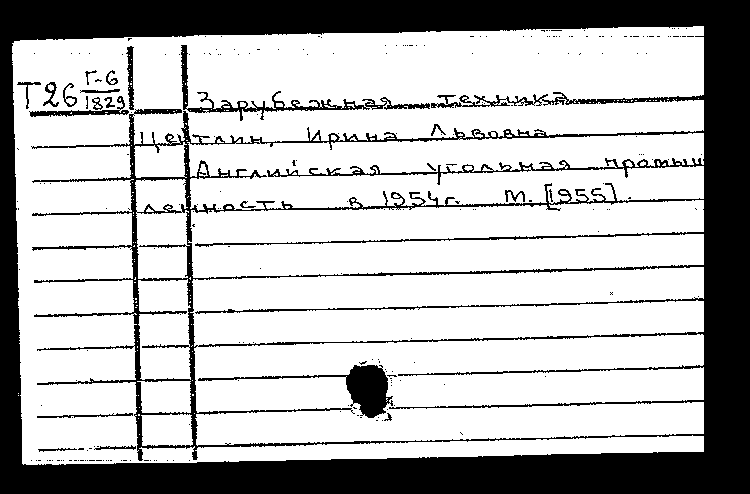 Т26 Г-6
1829
Зарубежная техника
Цейтлин, Ирина Львовна
Английская угольная промыш
ленность в 1954г. М. [1955].